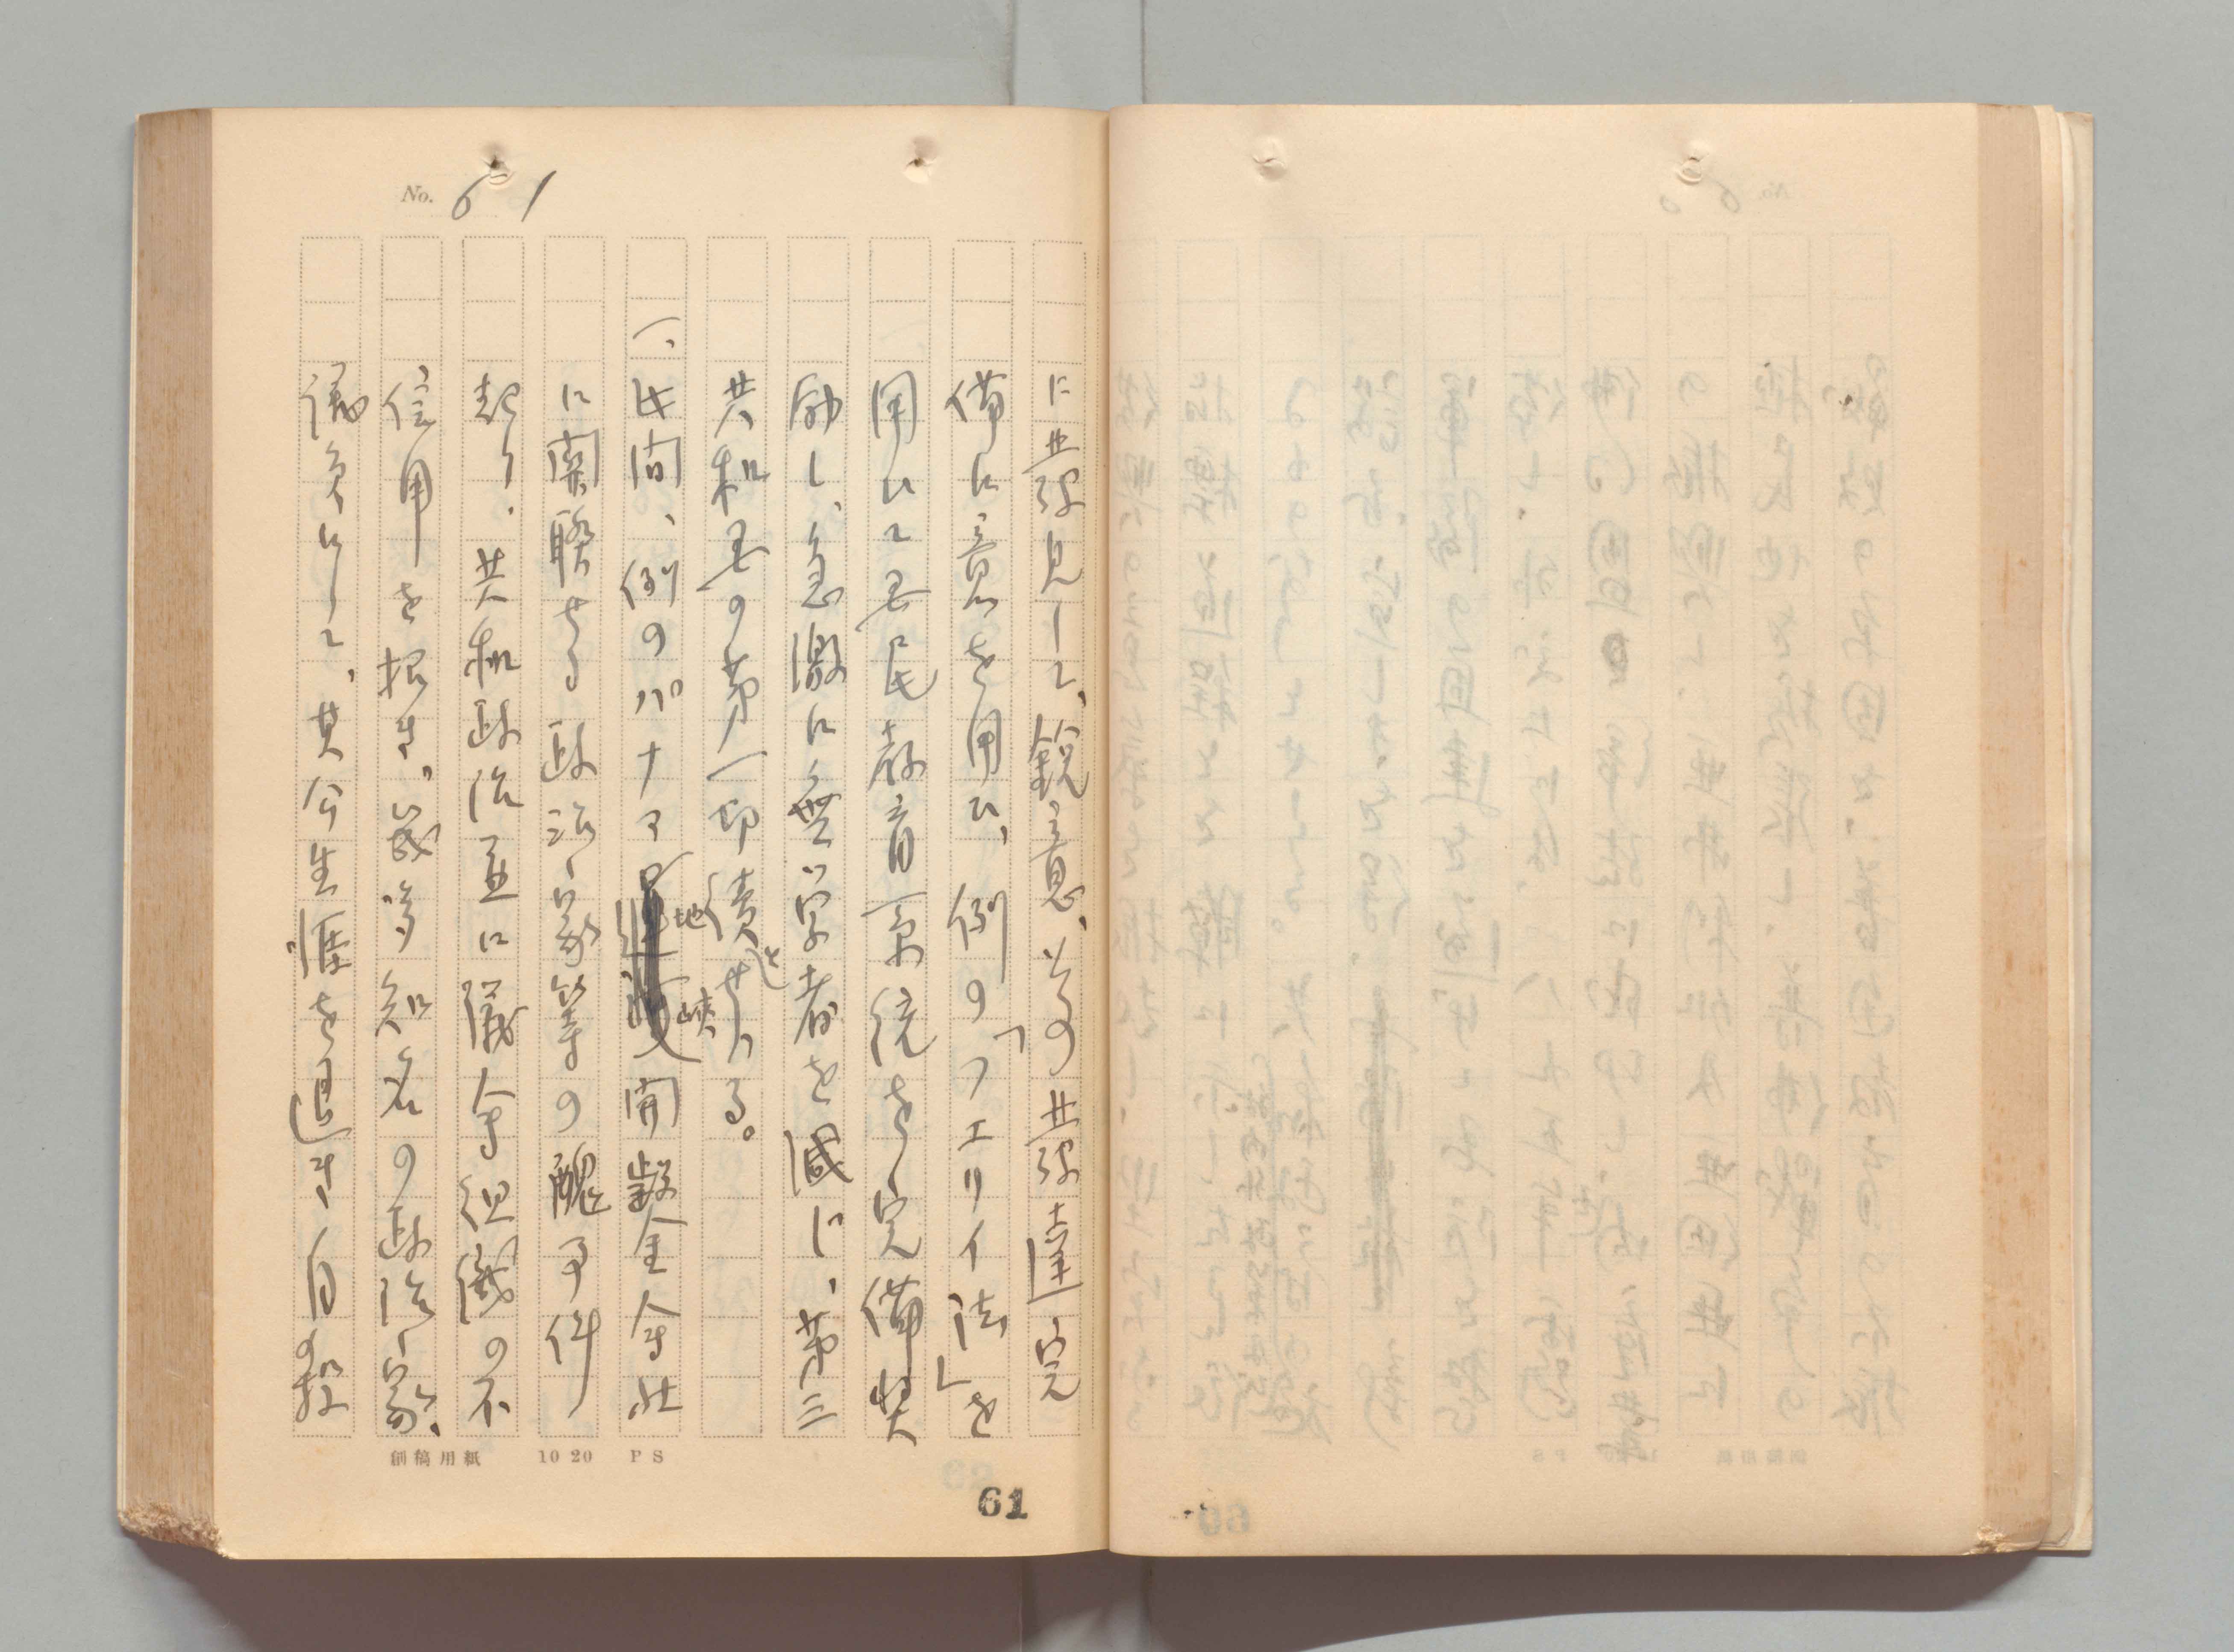 No. 61
に普及しして、鋭意、其の普及達完
備に意を用ひ、例の「フェリイ法」を
用ひて国民教育系統を完備奨
励し、急激に無学者を減じ、第三
共和国の第一功績とせらる。
一、此間、例のパナマ地峡開鑿会社
に関聯せる政治家等の醜事件
起り、共和政治並に議会組織の不
信用を招き、幾多知名の政治家、
議員にして、其公生涯を退き、自殺
創稿用紙 10 20 PS
61